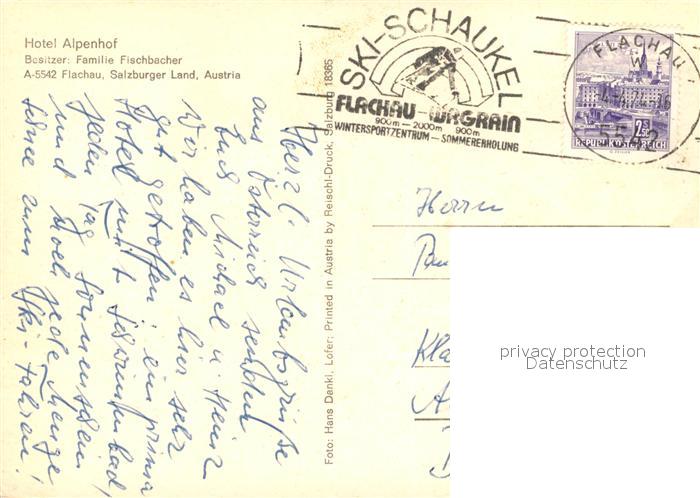 Hotel Alpenhof
Besitzer: Familie Fischbacher
A-5542 Flachau, Salzburger Land, Austria
Herzl. Urlaubsgrüße
aus Österreich senden
Euch Michael u. Heinz
Wir haben es hier sehr
gut getroffen, ein prima
Hotel mit Schwimmbad,
jeden Tag Sonnenschein
und noch jede Menge
Schnee zum Ski-Fahren!
Foto: Hans Dankl, Lofer: Printed in Austria by Reischl-Druck, Salzburg 18365
SKI-SCHAUKEL
FLACHAU - WAGRAIN
900m - 2000m 900m
WINTERSPORTZENTRUM - SOMMERERHOLUNG
FLACHAU
5542
2.50
REPUBLIK ÖSTERREICH
Herrn
Kla
A
privacy protection
Datenschutz